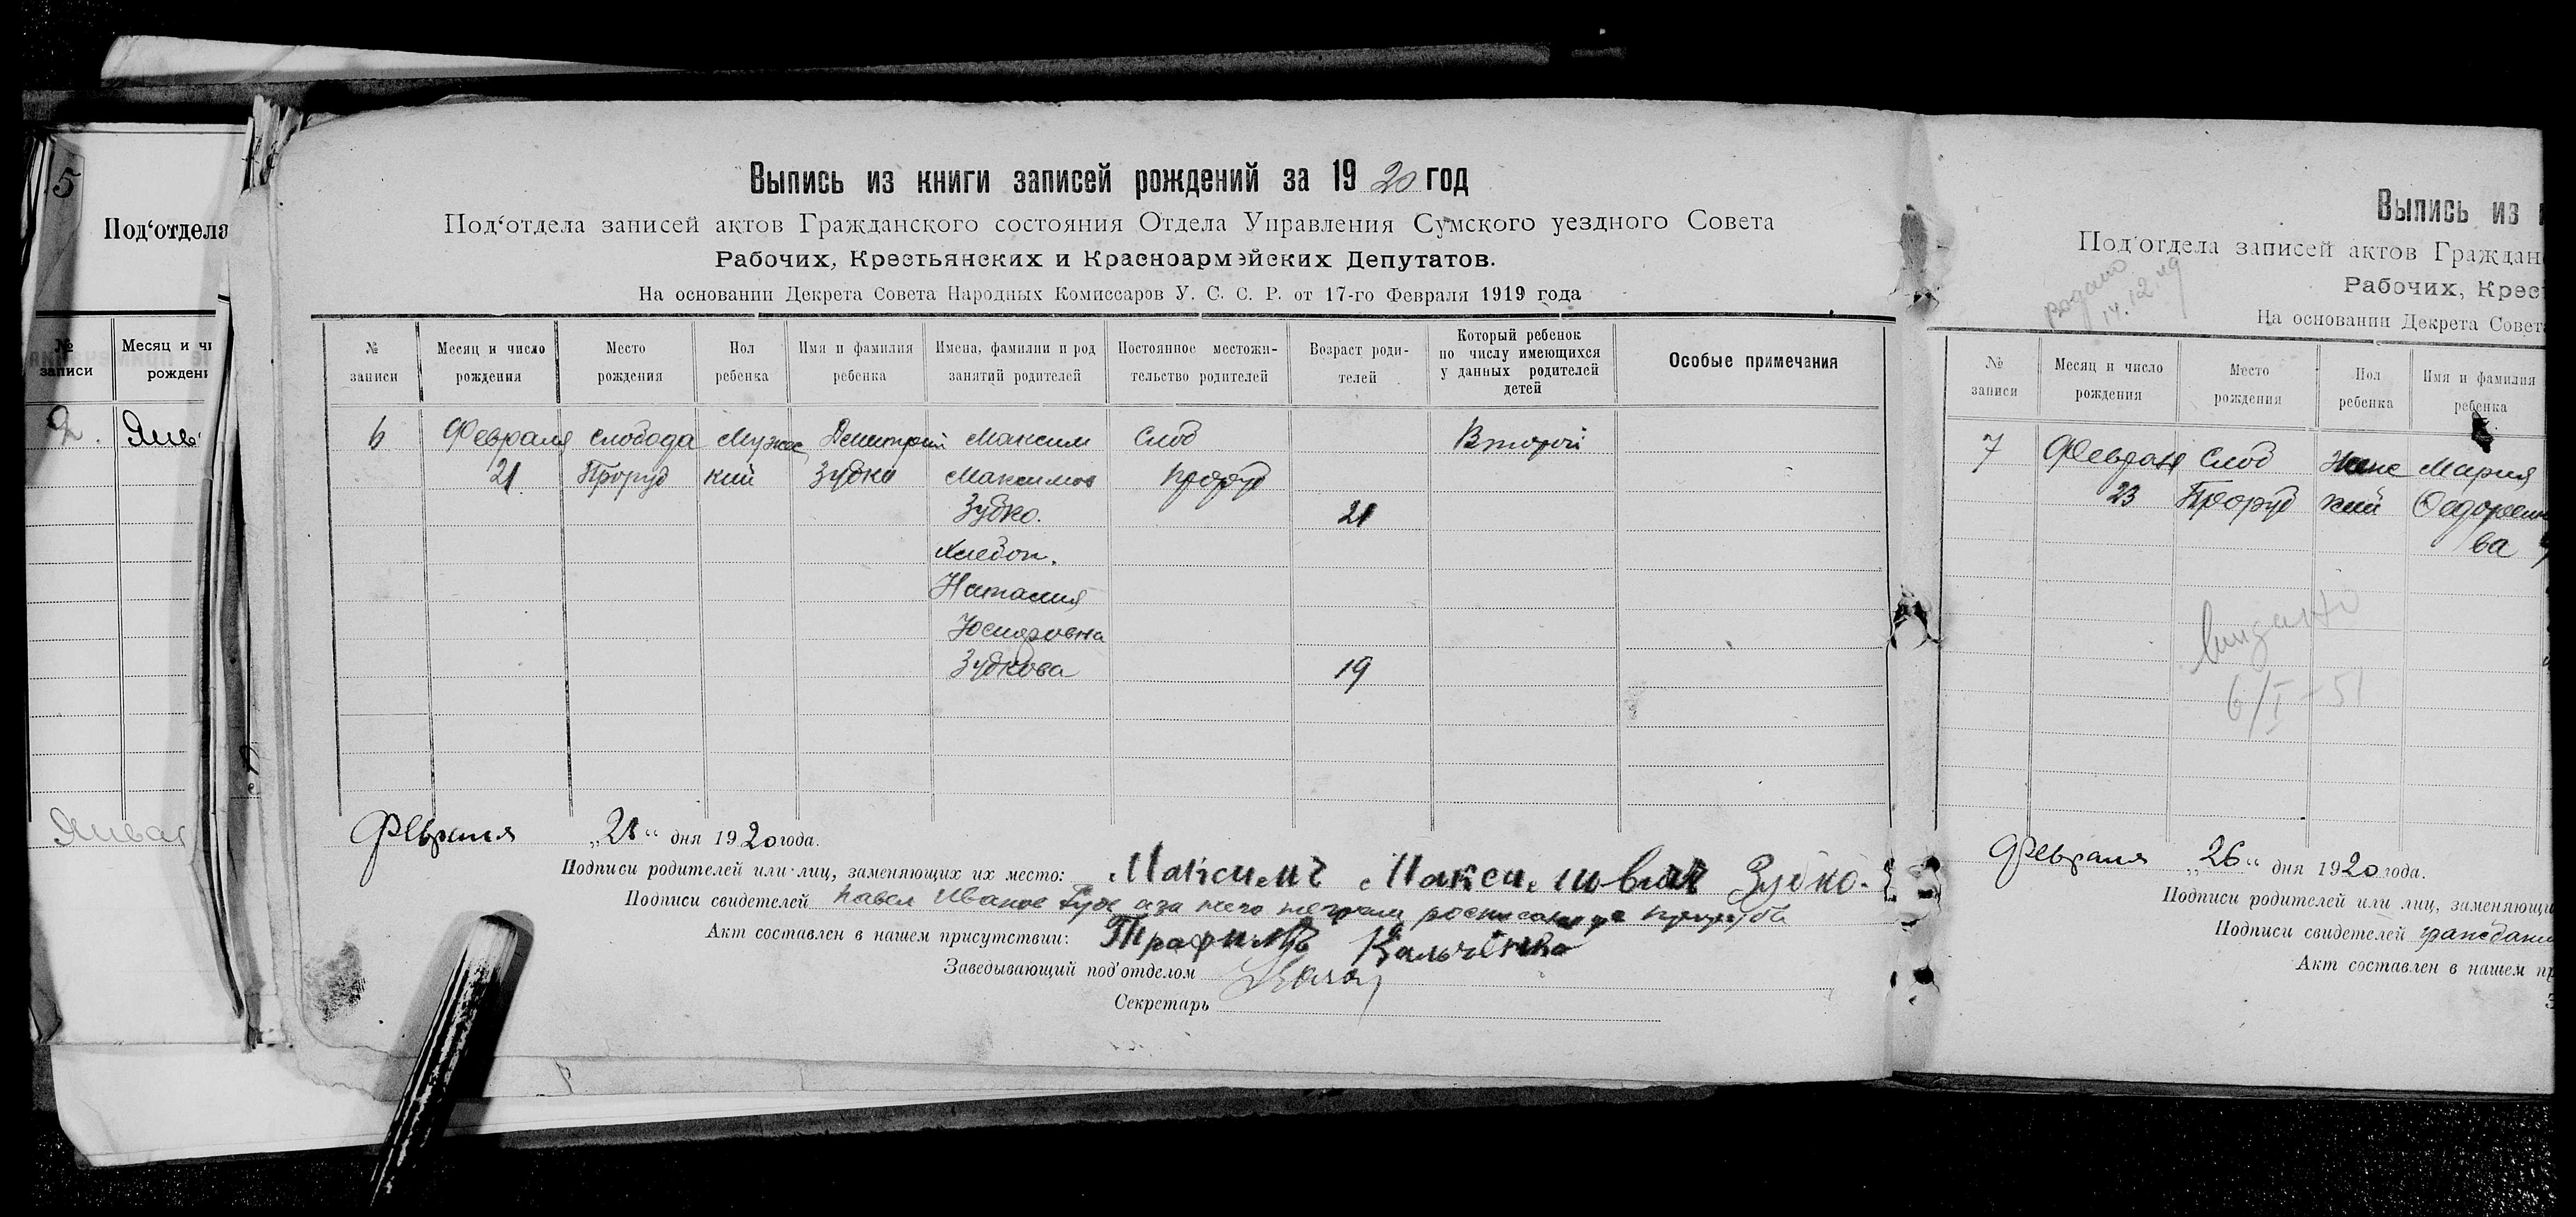 5
Под‘отдела
№ записи
Месяц и чи
рожден
2.
Янв
Январ
Выпись из книги записей рождений за 1920 год
Под‘отдела записей актов Гражданского состояния Отдела Управления Сумского уездного Совета
Рабочих, Крестьянских и Красноармейских Депутатов.
На основании Декрета Совета Народных Комиссаров У. С. С. Р. от 17-го Февраля 1919 года
№ записи
Месяц и число рождения
Место рождения
Пол ребенка
Имя и фамилия ребенка
Имена, фамилии и род занятий родителей
Постоянное местожительство родителей
Возраст родителей
Который ребенок по числу имеющихся у данных родителей детей
Особые примечания
6 Февраля слобода Мужес Демитрий Максим Слод Второй
21 Проруб кий Зубко Максимов Проруб
Зубко. 21
хлебоп.
Наталия
Зубкова 19
Февраля „21“ дня 1920 года.
Подписи родителей или лиц, заменяющих их место: Максимъ Максимовичъ Зубко.
Подписи свидетелей Павел Иванов
Акт составлен в нашем присутствии: Трафимъ Кальченко
Заведывающий под‘отделом
Секретарь
Выпись из
Под‘отдела записей актов Граждан
Рабочих, Крес
На основании Декрета Совет
14.12.49
№ записи
Месяц и число рождения
Место рождения
Пол ребенка
Имя и фамилия ребенка
7 Февраля Слоб Женс Мария
23 Проруб кий Федоренк
ва
6/I-51
Февраля „26“ дня 1920 года.
Подписи родителей или лиц, заменяющи
Подписи свидетелей граждани
Акт составлен в нашем пр